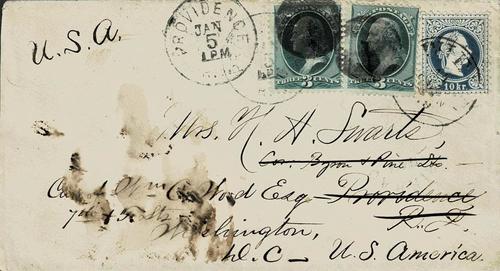 U.S.A.
PROVIDENCE
JAN
5
1 PM
THREE 3 CENTS
THREE 3 CENTS
10 kr.
Mrs. H. A. Swarts,
Cor. Byron & Pine Sts
Wm C. Wood Esq Providence
7th R.I.
Washington,
D.C — U.S. America.